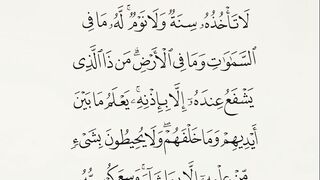 لَا تَأْخُذُهُۥ سِنَةٌ وَلَا نَوْمٌ ۚ لَّهُۥ مَا فِى
ٱلسَّمَٰوَٰتِ وَمَا فِى ٱلْأَرْضِ ۗ مَن ذَا ٱلَّذِى
يَشْفَعُ عِندَهُۥٓ إِلَّا بِإِذْنِهِۦ ۚ يَعْلَمُ مَا بَيْنَ
أَيْدِيهِمْ وَمَا خَلْفَهُمْ ۖ وَلَا يُحِيطُونَ بِشَىْءٍ
مِّنْ عِلْمِهِۦٓ إِلَّا بِمَا شَآءَ ۚ وَسِعَ